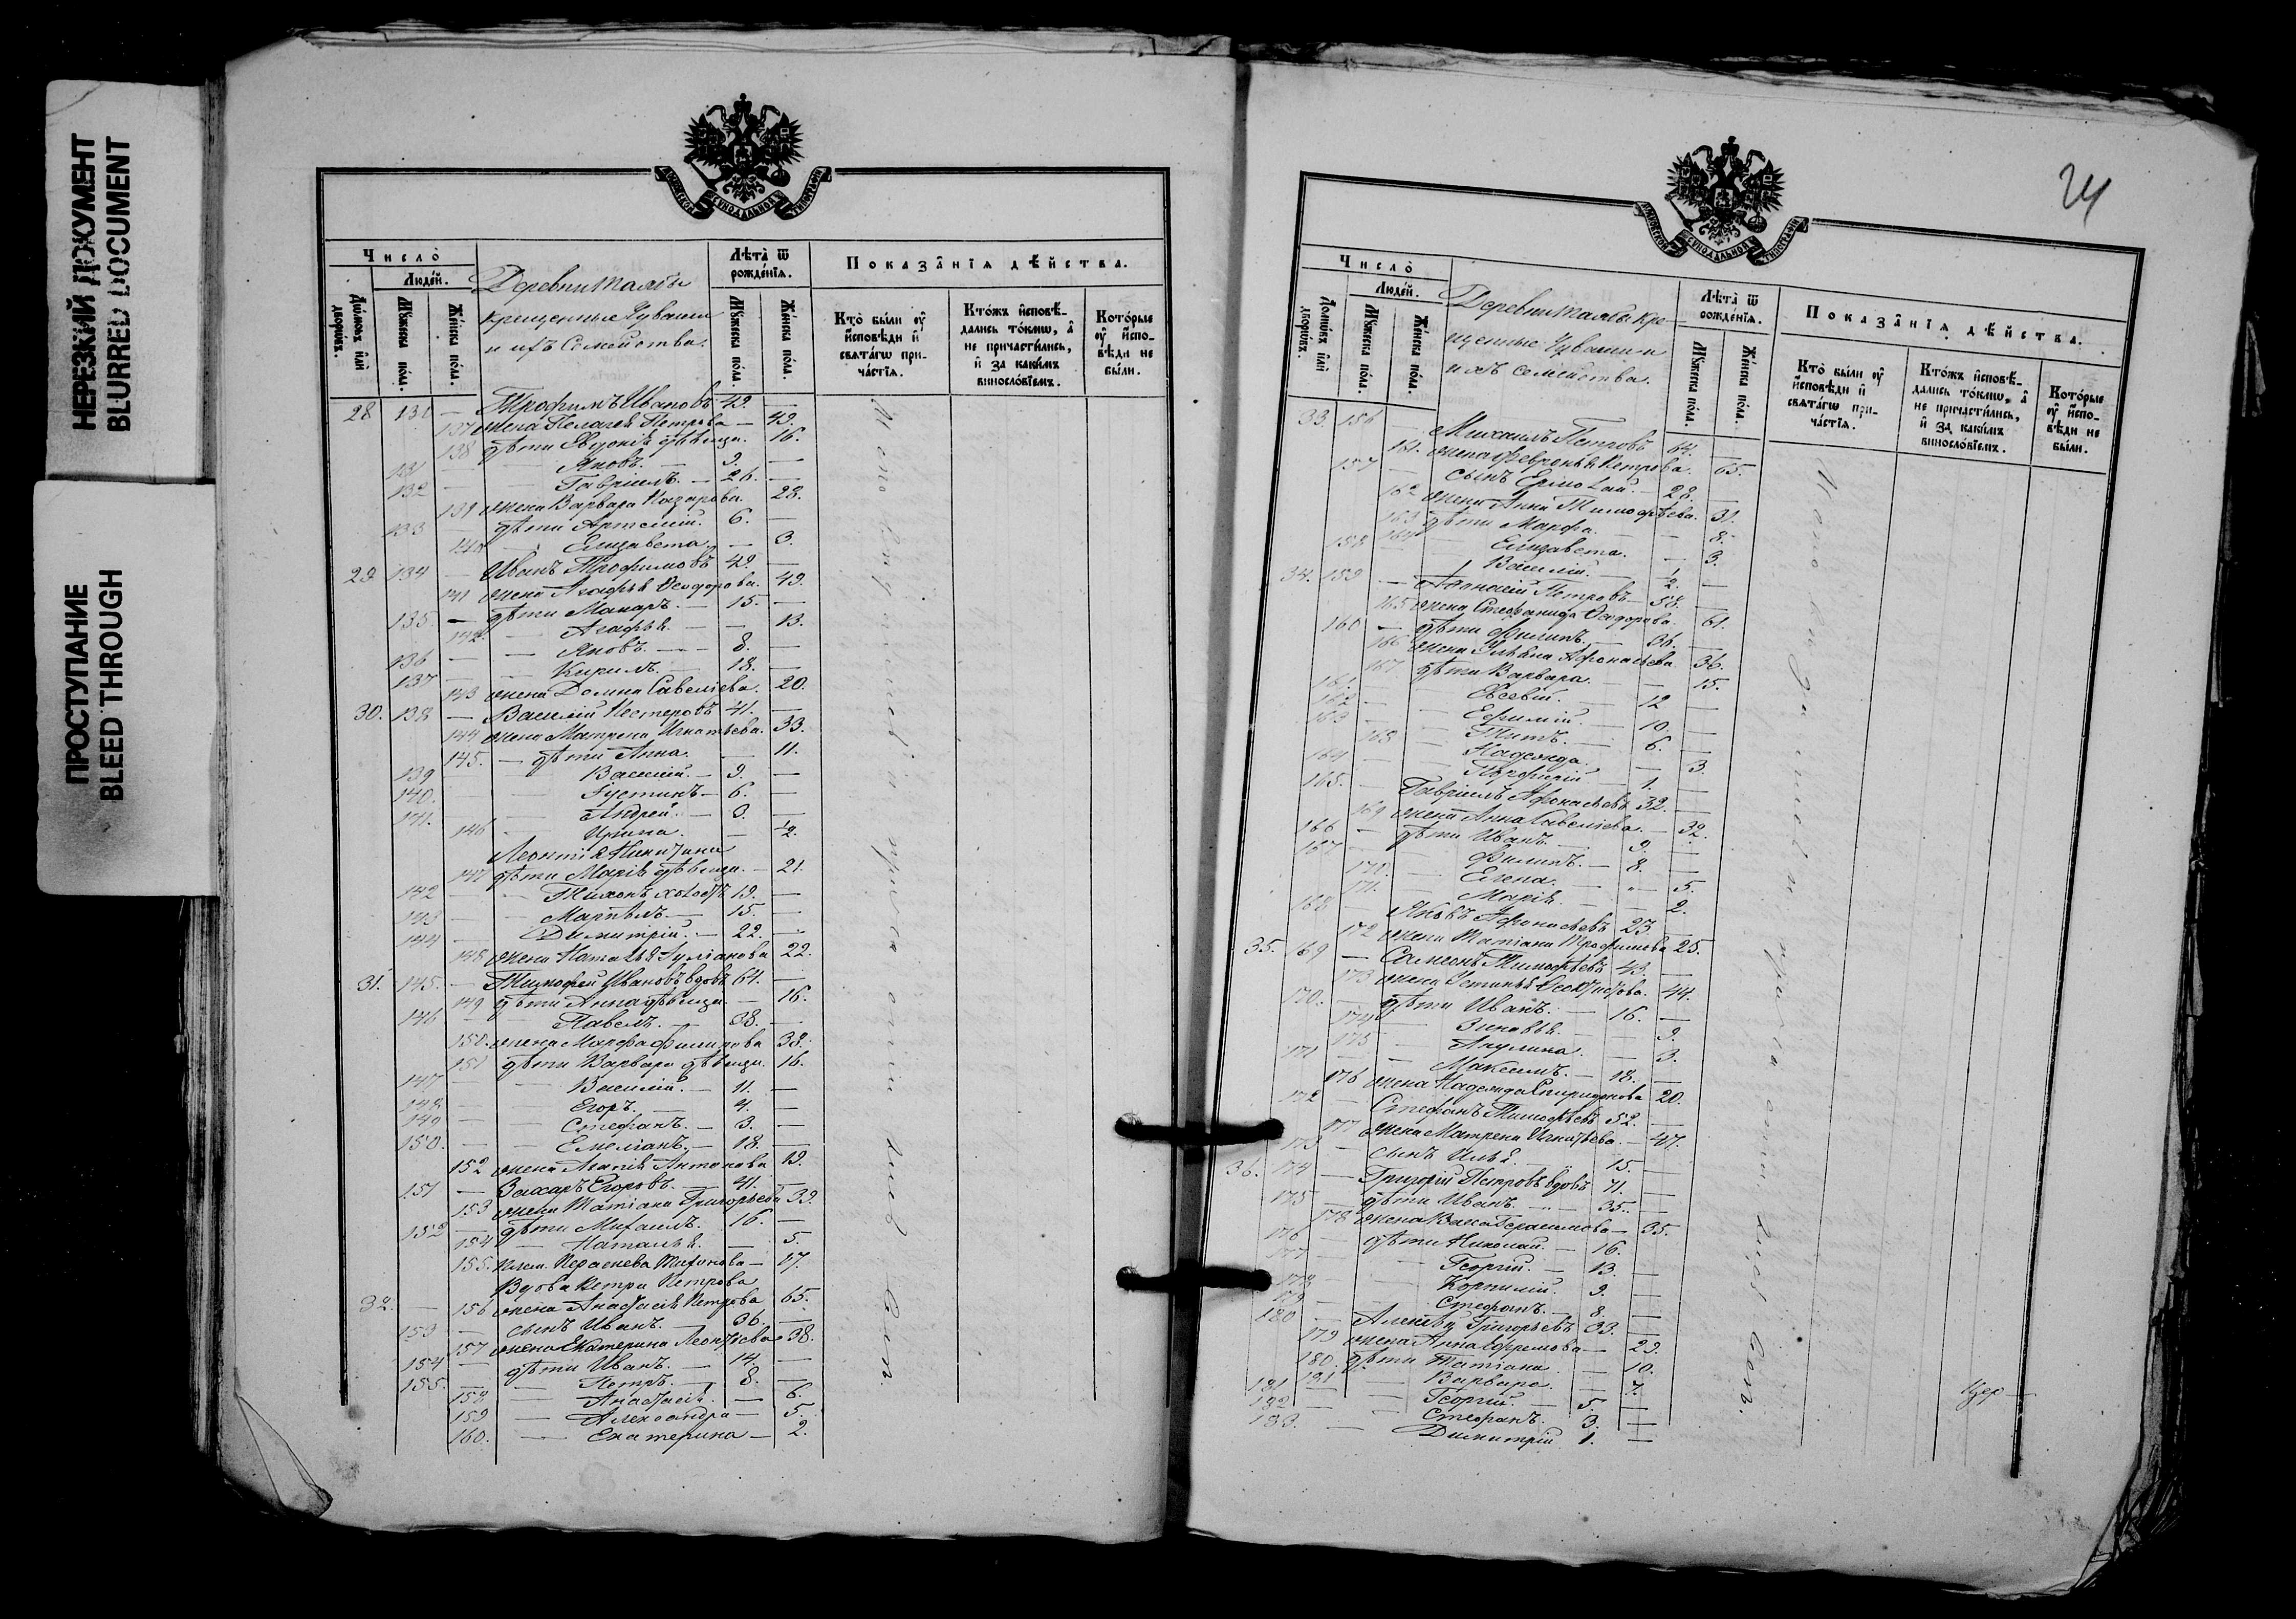 НЕРЕЗКИЙ ДОКУМЕНТ
BLURRED DOCUMENT
ПРОСТУПАНИЕ
BLEED THROUGH
Число̀
Люде́й.
Домѡ́въ и҆лѝ дворѡ́въ.
Мꙋ́жеска по́ла.
Же́нска по́ла.
Деревни
крещенные Чуваши
и ихъ Семейства.
Лѣ́та ѿ рожде́нїѧ.
Мꙋ́жеска по́ла.
Же́нска по́ла.
Показа̂нїѧ дѣ́йства.
Ктѡ̀ бы́ли оу҆ и҆сповѣ́ди и҆ свѧта́гѡ прича́стїѧ.
Кто́жъ и҆сповѣ́дались то́кмѡ, а҆ не причасти́лись, и҆ за каки́мъ винословїемъ.
Кото́рые оу҆ и҆сповѣ́ди не бы́ли.
28 131 — Трофимъ Ивановъ 42. —
137 жена Пелагея Петрова — 43.
138 дѣти Евдокія дѣвица. 16.
131 — Яковъ. — 9. —
132 — Гавріилъ. — 26. —
139 жена Варвара Назарова. 28.
133 дѣти Артемій. 6. —
140 — Елизавета. — 3.
29 134 — Иванъ Трофимовъ 42. —
141 жена Агафья Ѳеодорова. 42.
135. — дѣти Макаръ. — 15. —
142 — Агафья. — 13.
136 — — Яковъ. — 8. —
137 — Кирилъ. — 18. —
143 жена Домна Савеліева. 20.
30. 138 — Василій Нестеровъ 41. —
144 жена Матрена Игнатьева. 33.
145. — дѣти Анна. — 11.
139 Василій. — 9. —
140. — Густинъ — 6. —
141. — Андрей. — 3. —
146 — Ирина. — ½.
Леонтія Никитина
147 дѣти Марія дѣвица. — 21.
142 — Тихонъ холостъ 19. —
143 — — 15. —
144 — Димитрій. — 22. —
148 жена Наталья Іуліанова 22.
31. 145. — Тимофей Ивановъ вдовъ 64. —
149 дѣти Анна дѣвица — 16.
146 — Павелъ. — 38. —
150. жена Марфа Филипова 38.
151 дѣти Варвара дѣвица. 16.
147 — Василій. — 11. —
148 — Егоръ. — 4. —
149 — Стефанъ. — 3. —
150. — Емеліанъ. — 18. —
152 жена Агапія Антонова 19.
151 — Захаръ Егоровъ. — 41. —
153 жена Татіана Григорьева 39.
152 — дѣти Михаилъ. 16. —
154 — Наталья. — 5.
155. — 17.
Вдова Петра Петрова
32. — 156 жена Анастасія Петрова 65.
153 — сынъ Иванъ. — 36. —
157 жена Екатерина Леонтіева 38.
154 — дѣти Иванъ. — 14. —
155. — Петръ. — 8. —
158 — Анастасія. — 6.
159 — Александра — 5.
160. — Екатерина — 2.
24
Число̀
Люде́й.
Домѡ́въ и҆лѝ дворѡ́въ.
Мꙋ́жеска по́ла.
Же́нска по́ла.
Деревни кре-
щенные Чуваши и
ихъ семейства.
Лѣ́та ѿ рожде́нїѧ.
Мꙋ́жеска по́ла.
Же́нска по́ла.
Показа̂нїѧ дѣ́йства.
Ктѡ̀ бы́ли оу҆ и҆сповѣ́ди и҆ свѧта́гѡ прича́стїѧ.
Кто́жъ и҆сповѣ́дались то́кмѡ, а҆ не причасти́лись, и҆ за каки́мъ винословїемъ.
Кото́рые оу҆ и҆сповѣ́ди не бы́ли.
33. 156 Михаилъ Петровъ 64. —
161. жена Февронья Петрова. 65.
157 — сынъ Ермолай. — 28. —
162 жена Анна Тимофѣева. 31.
163 дѣти Марфа. — 8.
164 Елизавета. — 3.
158 Василій. ½. —
34. 159 — Афонасій Петровъ — 58. —
165 жена Стефанида Ѳеодорова. 61.
160 — дѣти Филипъ. — 36. —
166 жена Уліяна Афонасьева 36.
167 дѣти Варвара. — 15.
161 — Евсевій. — 12 —
162 — Ефимій. — 10. —
163 — Титъ. — 6. —
168 — Надежда. — 3.
164 — Порфирій 1. —
165. — Гавріилъ Афонасьевъ 32. —
169 жена Анна Савеліева. — 32.
166 — дѣти Иванъ. — 9. —
167 — Филипъ. — 8. —
170. — Елена. — 5.
171. — Марія. — 2.
168 — Яковъ Афонасьевъ 23. —
172 жена Татіана Трофимова 25.
35. 169 — Самсонъ Тимофѣевъ 43. —
173 жена Устинья 44.
170. — дѣти Иванъ. — 16. —
174 — Зиновья. — 9.
175 — Акулина. — 3.
171 — Максимъ. — 18. —
176 жена Надежда Спиридонова 20.
172 — Стефанъ Тимофѣевъ 52. —
177 жена Матрена Игнатьева. — 47.
173 — сынъ Илья. 15. —
36. 174 — Григорій Петровъ вдовъ 71. —
175 — дѣти Иванъ. — 35. —
178 жена Васса Герасимова — 35.
176 — дѣти Николай. — 16. —
177 — Георгій. — 13. —
178 — Корнилій. — 9. —
179 — Стефанъ. — 8. —
180 — Алексѣй Григорьевъ 33. —
179 жена Анна Ефремова — 29.
180. дѣти Татіана — 10.
181 — Варвара. — 7.
181 — Георгій. — 5. —
182 — Стефанъ. 3. —
183. — Димитрій 1. —